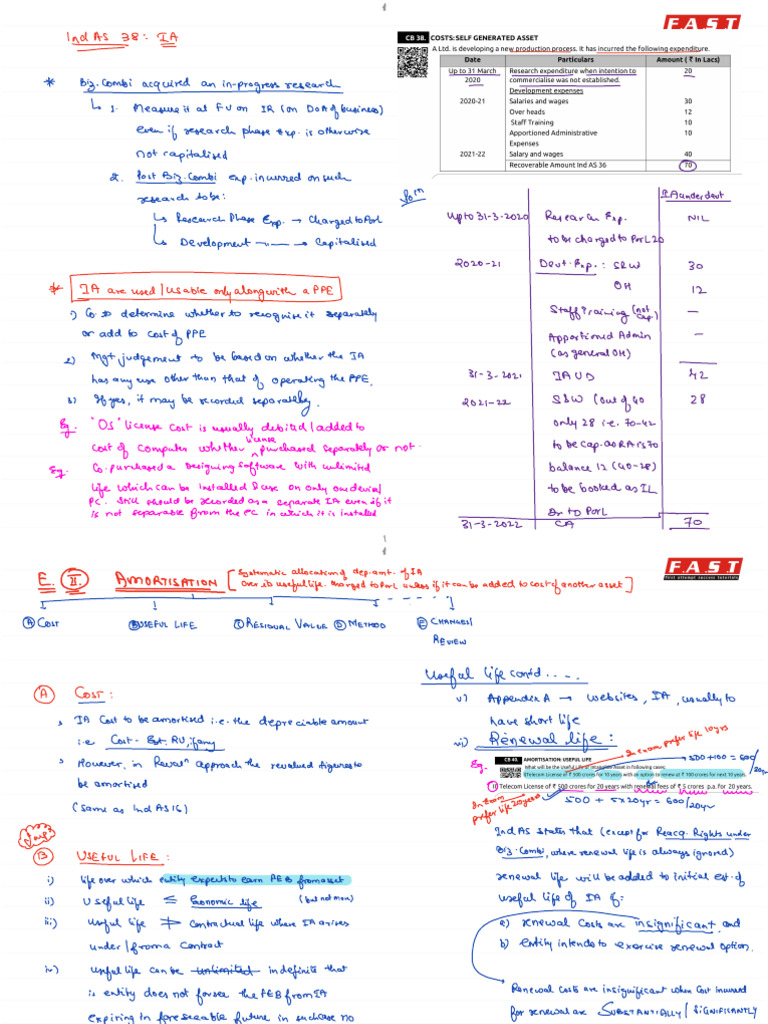 F.A.S.T
Ind AS 38: IA
* Biz. Combi acquired an in-progress research
↳ 1. Measure it at FV on IR (on DoA of business)
even if research phase exp. is otherwise
not capitalised
2. Post Biz. Combi exp. incurred on such
research to be:
↳ Research Phase Exp. → Charged to PorL
↳ Development —"— → Capitalised
* IA are used / usable only along with a PPE
1) Co to determine whether to recognise it separately
or add to cost of PPE
2) Mgt judgement to be based on whether the IA
has any use other than that of operating the PPE.
3) If yes, it may be recorded separately.
Eg. "OS" license cost is usually debited / added to
cost of computer whether license purchased separately or not.
Eg. Co. purchased a Designing Software with unlimited
life which can be installed & use on only one device/
PC. Still should be recorded as a separate IA even if it
is not separable from the PC in which it is installed
CB 38. COSTS: SELF GENERATED ASSET
A Ltd. is developing a new production process. It has incurred the following expenditure.
Date Particulars Amount ( ₹ In Lacs)
Up to 31 March Research expenditure when intention to 20
2020 commercialise was not established.
Development expenses
2020-21 Salaries and wages 30
Over heads 12
Staff Training 10
Apportioned Administrative 10
Expenses
2021-22 Salary and wages 40
Recoverable Amount Ind AS 36 70
Sol^n
IA under devt
Upto 31-3-2020 Research Exp. NIL
to be charged to PorL 20
2020-21 Devt. Exp.: S&W 30
OH 12
Staff Training (not cap.) —
Apportioned Admin —
(as general OH)
31-3-2021 IAUD 42
2021-22 S&W (out of 40 28
only 28 i.e. 70-42
to be cap. as RA is 70
balance 12 (40-28)
to be booked as IL
Dr to PorL
31-3-2022 CA 70
F.A.S.T
First attempt success tutorials
E. II. AMORTISATION [Systematic allocation of dep. amt. of IA
over its useful life. Charged to PorL unless if it can be added to cost of another asset]
A COST B USEFUL LIFE C RESIDUAL VALUE D METHOD E CHANGES/
REVIEW
A COST:
IA Cost to be amortised i.e. the depreciable amount
i.e Cost - Est. RV, if any
However, in Reval^n approach the revalued figures to
be amortised
(Same as Ind AS 16)
Imp
B USEFUL LIFE:
i) life over which entity expects to earn FEB from asset
ii) Useful life ≤ Economic life (but not more)
iii) Useful life ≯ Contractual life where IA arises
under / from a contract
iv) useful life can be unlimited indefinite that
is entity does not forsee the FEB from IA
expiring in foreseeable future in such case no
Useful life contd.....
v) Appendix A → websites, IA, usually to
have short life
vi) Renewal life:
In exam prefer life 10yrs
Eg. CB 40. AMORTISATION: USEFUL LIFE
What will be the Useful Life of Intangible Asset in following cases:
i) Telecom License of ₹ 500 crores for 10 years with an option to renew at ₹ 100 crores for next 10 years.
500 + 100 = 600/20yr
ii) Telecom License of ₹ 500 crores for 20 years with renewal fees of ₹ 5 crores p.a. for 20 years.
In Exam prefer life 20 years
500 + 5x20yr = 600/20yr
Ind AS states that (except for Reacq. Rights under
Biz. Combi, where renewal life is always ignored)
renewal life will be added to initial est. of
useful life of IA if:
a) renewal costs are insignificant and
b) entity intends to exercise renewal option.
Renewal Costs are insignificant when Cost incurred
for renewal are SUBSTANTIALLY / SIGNIFICANTLY